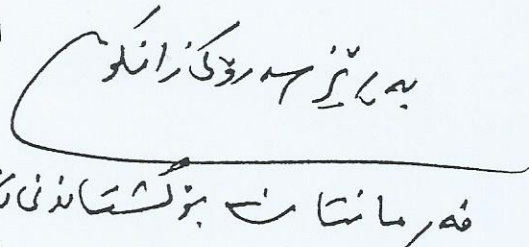 بەڕێز سەرۆکی زانکۆ
فەرمانتان بۆ گشتاندنی